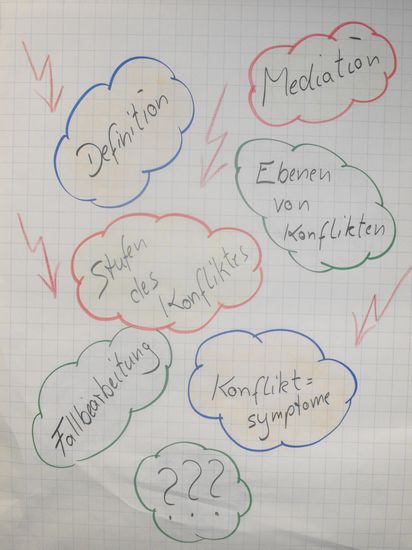 Definition
Mediation
Ebenen
von
Konflikten
Stufen
des
Konfliktes
Fallbearbeitung
Konflikt=
symptome
???